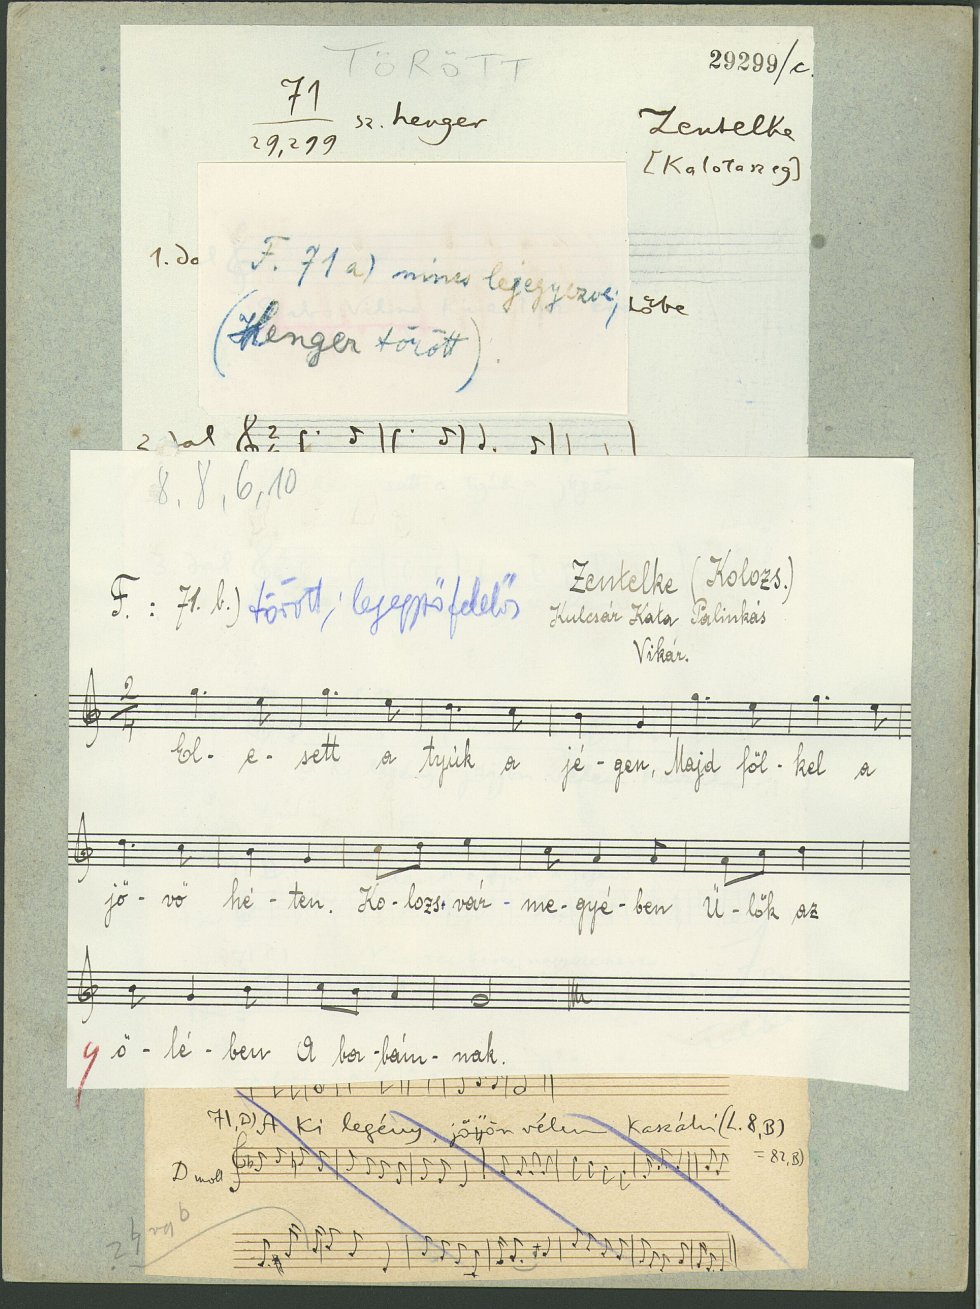 TÖRÖTT
29299/c.
71
29,299 sz. henger
Zentelke
[Kalotaszeg]
1. da
F. 71 a) nincs lejegyezve;
lőbe
(Henger törött)
2. dal
8, 8, 6, 10
F.: 71. b.) törött;
Zentelke (Kolozs.)
Kulcsár Kata Pálinkás
Vikár.
2/4
El - e - sett a tyúk a jé - gen, Majd föl - kel a
jö - vő hé - ten. Ko - lozs - vár - me - gyé - ben Ü - lök az
ö - lé - ben A ba - bám - nak.
71, D) A ki legény, jöjjön vélem kaszálni (L. 8, B)
= 82, B)
D moll